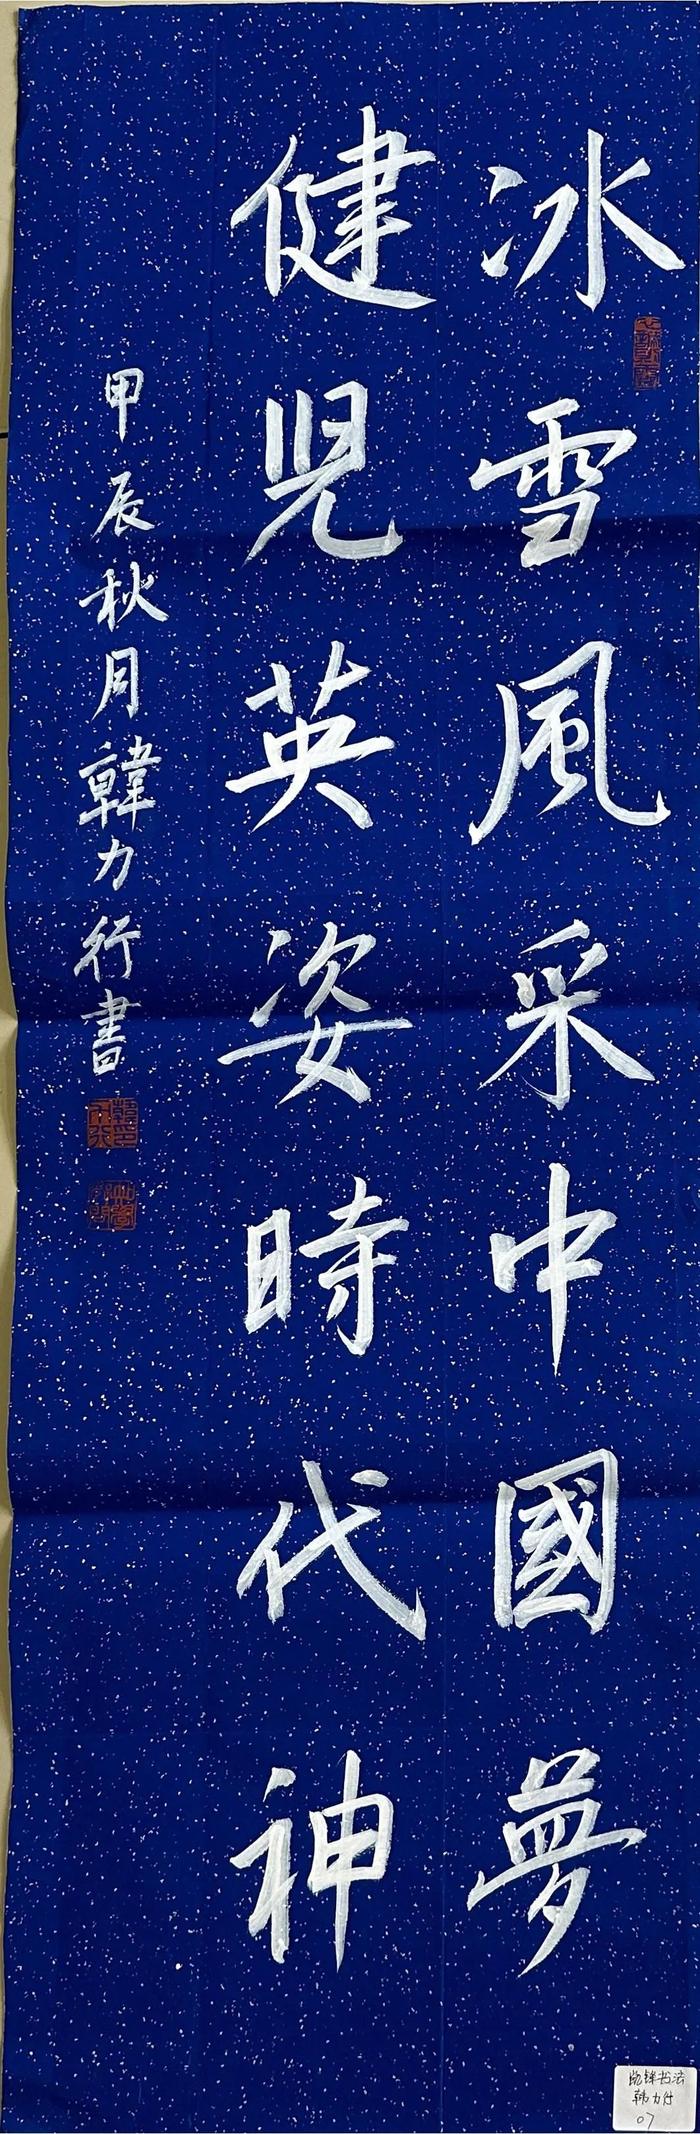 冰雪風采中國夢
健児英姿時代神
甲辰秋月韓力行書
书法
韩力行
07